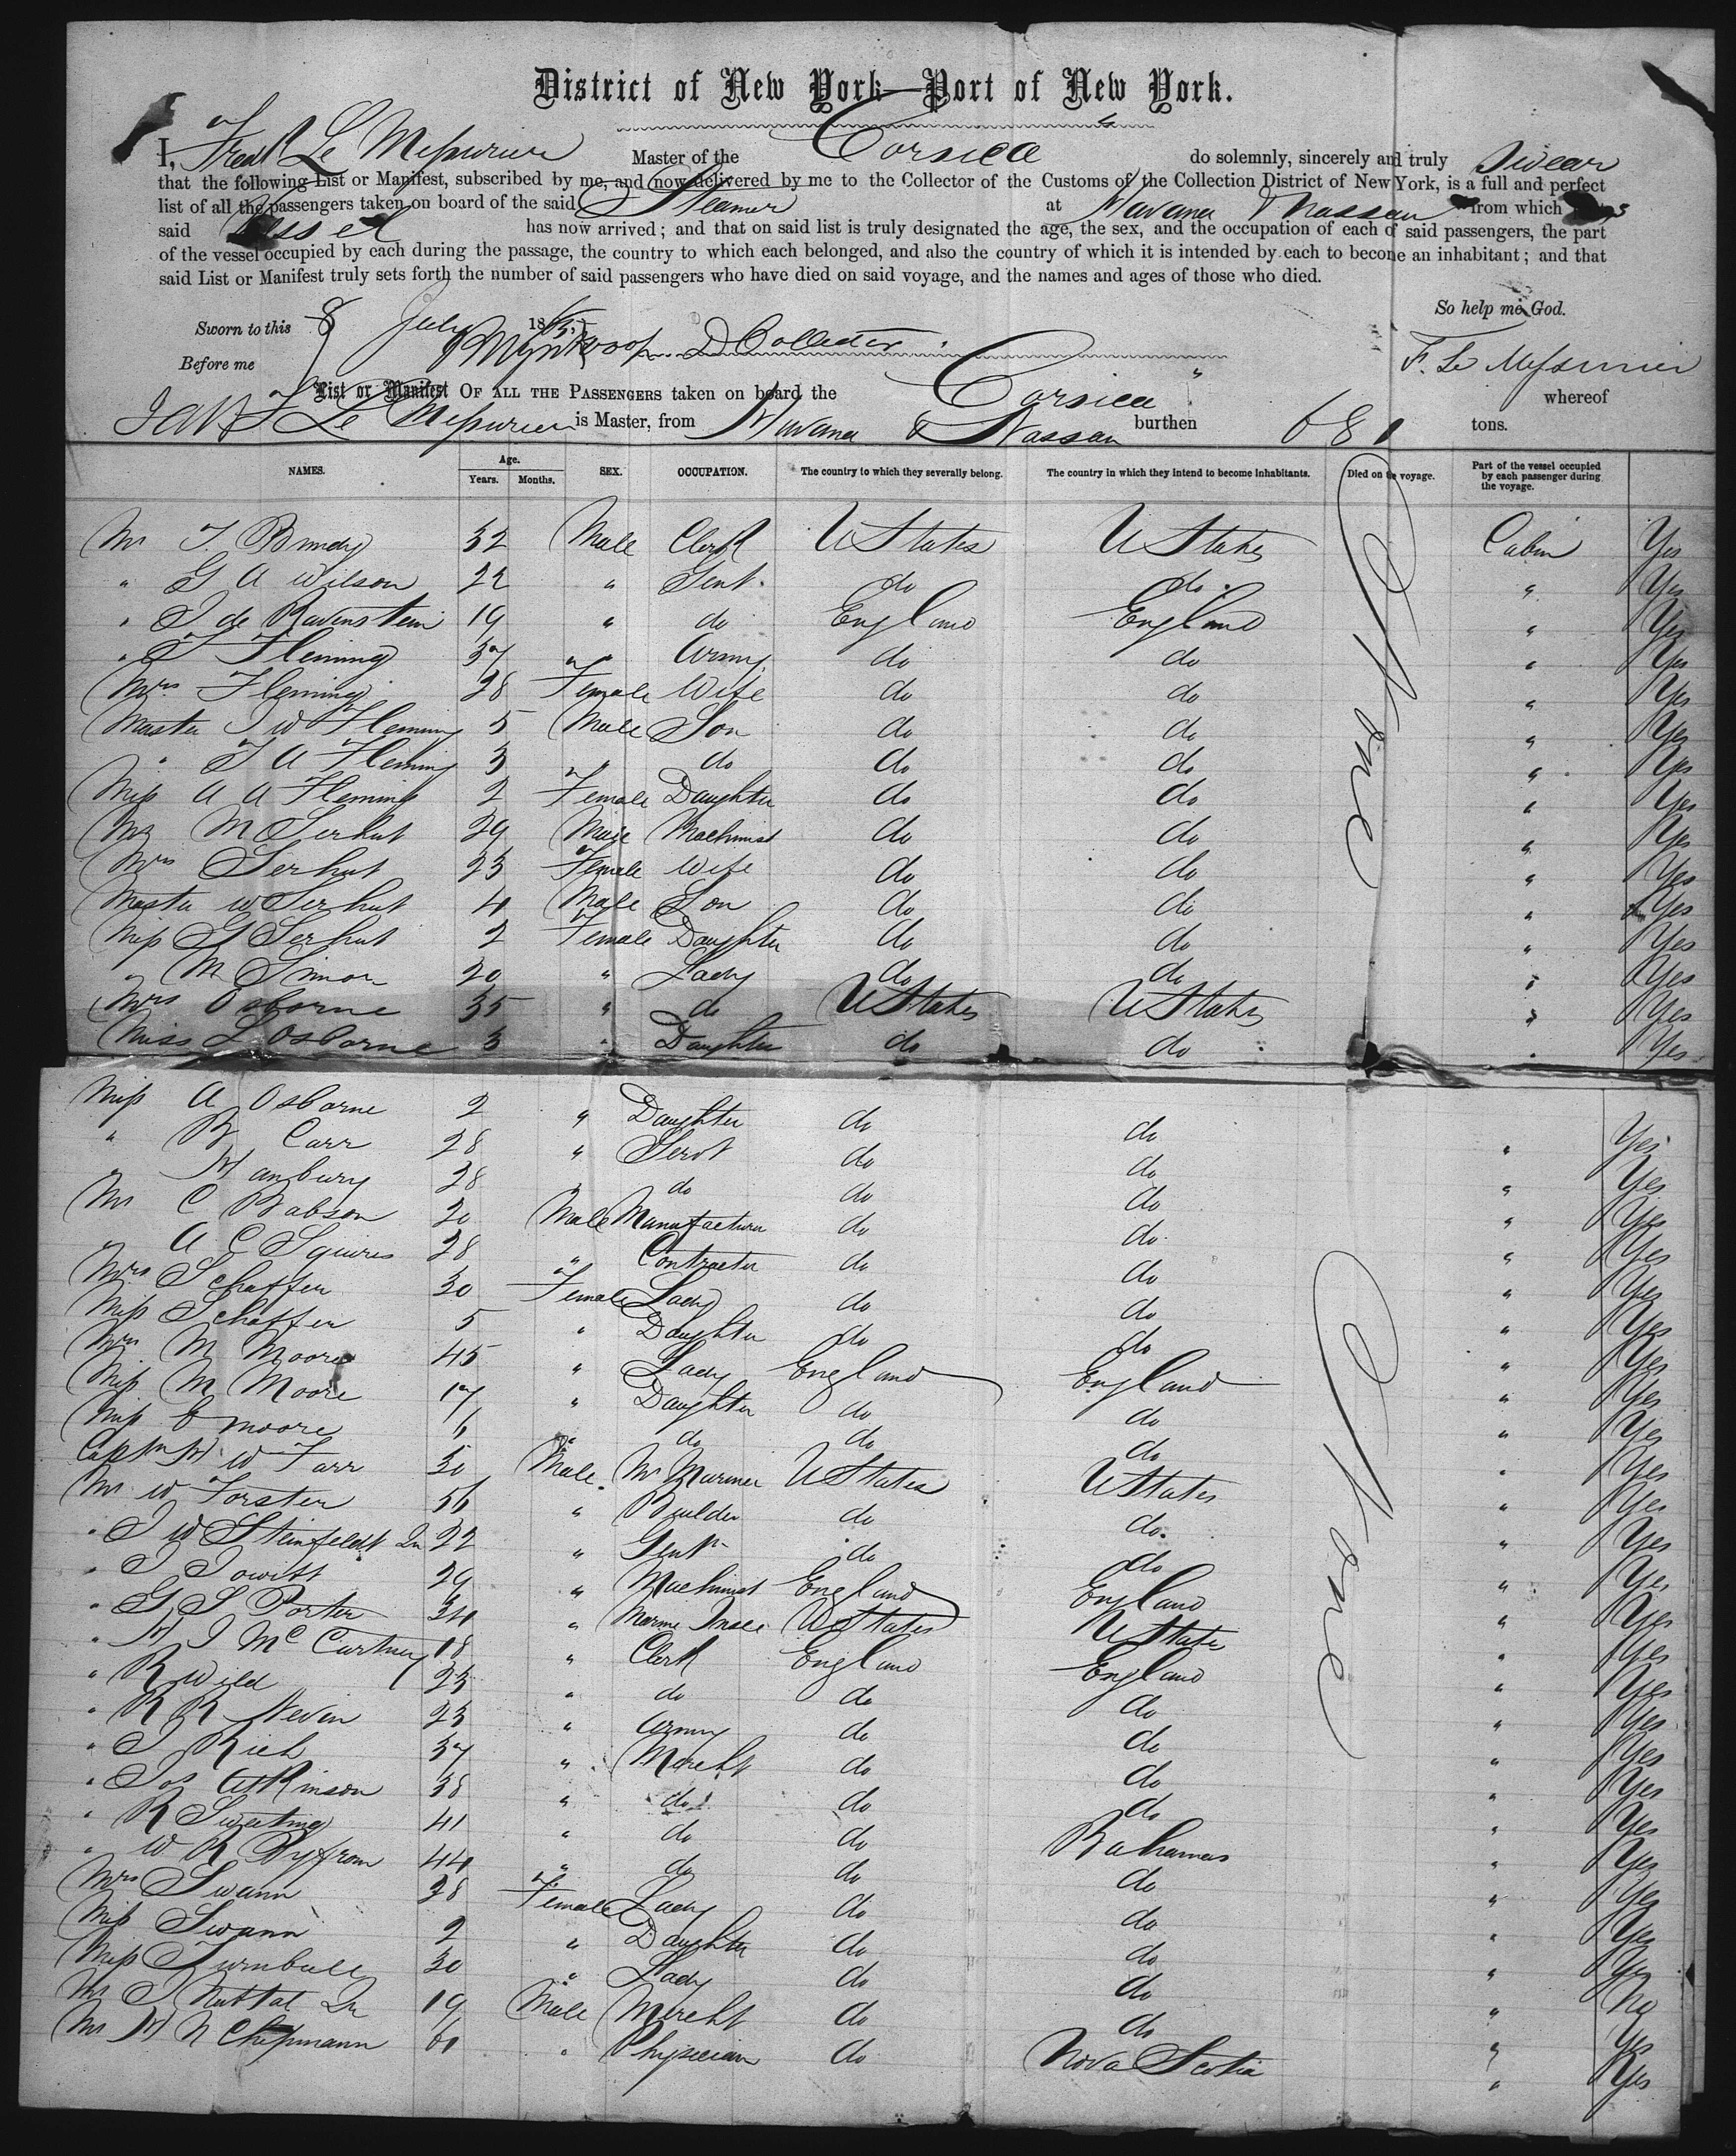 District of New York—Port of New York.
I, Fredk Le Messurier Master of the Corsica do solemnly, sincerely and truly Swear
that the following List or Manifest, subscribed by me, and now delivered by me to the Collector of the Customs of the Collection District of New York, is a full and perfect
list of all the passengers taken on board of the said Steamer at Havana & Nassau from which
said Vessel has now arrived; and that on said list is truly designated the age, the sex, and the occupation of each of said passengers, the part
of the vessel occupied by each during the passage, the country to which each belonged, and also the country of which it is intended by each to become an inhabitant; and that
said List or Manifest truly sets forth the number of said passengers who have died on said voyage, and the names and ages of those who died.
So help me God.
Sworn to this 8 July 186
Before me D Collector
F. Le Messurier
List or Manifest OF ALL THE PASSENGERS taken on board the Corsica whereof
Le Messurier is Master, from Havana & Nassau burthen tons.
NAMES. Age. Years. Months. SEX. OCCUPATION. The country to which they severally belong. The country in which they intend to become inhabitants. Died on the voyage. Part of the vessel occupied by each passenger during the voyage.
Mr T. Brundy 32 Male Clerk U States U States Cabin Yes
" G A Wilson 22 " Gent. do do. " Yes
" J de Ravenstein 19 " do England England " Yes
" T Fleming 37 " Army do do " Yes
Mrs Fleming 28 Female Wife do do " Yes
Master J W Fleming 5 Male Son do do " Yes
" T A Fleming 3 " do do do " Yes
Miss A A Fleming 2 Female Daughter do do " Yes
Mr M Serhut 29 Male Machinist do do " Yes
Mrs Serhut 23 Female Wife do do " Yes
Master W Serhut 4 Male Son do do " Yes
Miss G Serhut 2 Female Daughter do do " Yes
" M Simon 20 " Lady do do " Yes
Mrs Osborne 35 " do U States U States " Yes
Miss L Osborne 3 " Daughter do do " Yes
None
Miss A Osborne 2 " Daughter do do " Yes
" B Carr 28 " Servt do do " Yes
" Hanbury 28 " do do do " Yes
Mr C Babson 20 Male Manufacturer do do " Yes
" A C Squires 28 " Contractor do do " Yes
Mrs Schaffer 30 Female Lady do do " Yes
Miss Schaffer 5 " Daughter do do " Yes
Mrs M Moore 45 " Lady England England " Yes
Miss M Moore 17 " Daughter do do " Yes
Miss E Moore 16 " do do do " Yes
Captn H W Farr 50 Male Mr Mariner U States U States " Yes
Mr W Forster 56 " Builder do do " Yes
" J W Steinfeldt Jn 22 " Gent do do " Yes
" J Jowitt 29 " Machinist England England " Yes
" G S Porter 34 " Marine U States U States " Yes
" H J McCartney 18 " Clerk England England " Yes
" R Wild 23 " do do do " Yes
" R R Nevin 23 " Army do do " Yes
" J Rich 37 " Mercht do do " Yes
" Jos Atkinson 38 " do do do " Yes
" R Sweeting 41 " do do Bahamas " Yes
" W R Pyfrom 44 " do do do " Yes
Mrs Swann 28 Female Lady do do " Yes
Miss Swann 2 " Daughter do do " Yes
Miss Turnbull 30 " Lady do do " No
Mr J Nuttal Jn 19 Male Mercht do do " Yes
Mr H N Chipmann 60 " Physician do Nova Scotia " Yes
None